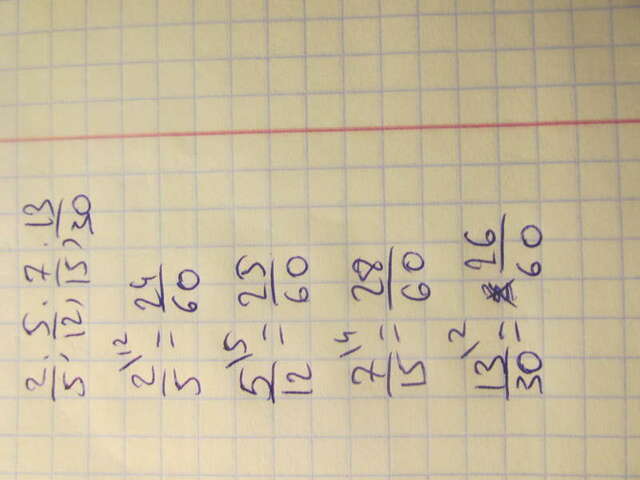 2/5; 5/12; 7/15; 13/30
2/5 \12 = 24/60
5/12 \5 = 25/60
7/15 \4 = 28/60
13/30 \2 = 26/60